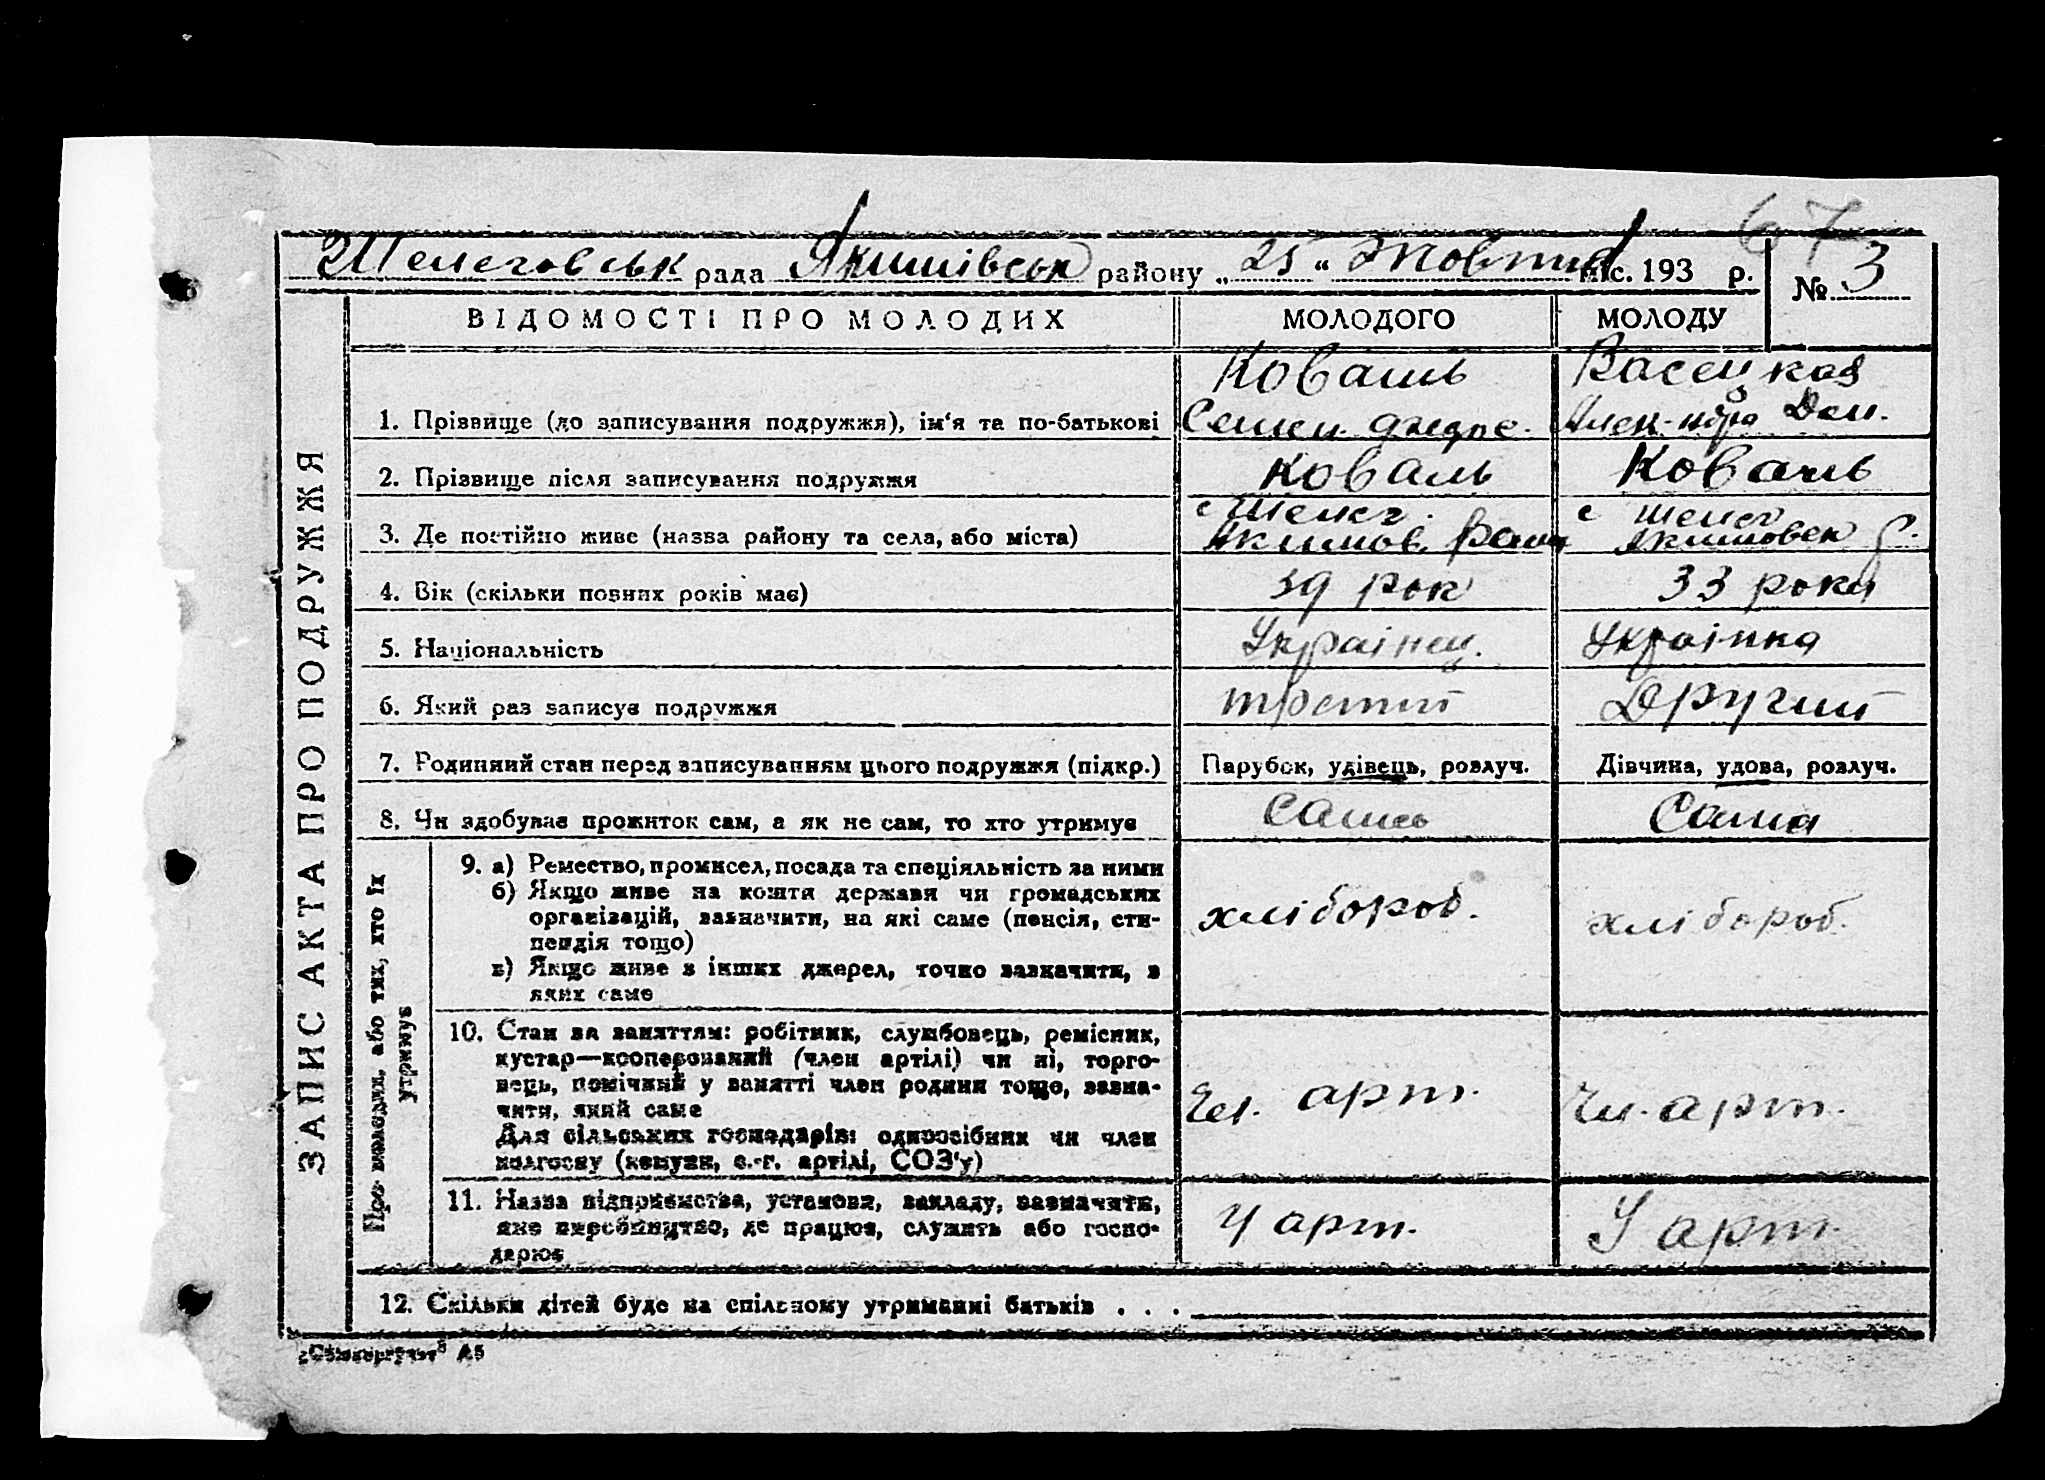 67
Шелеговськ рада Якимівськ району „ 25 “ Жовтня міс. 193 р. № 3
ЗАПИС АКТА ПРО ПОДРУЖЖЯ
ВІДОМОСТІ ПРО МОЛОДИХ МОЛОДОГО МОЛОДУ
Коваль Васецкая
1. Прізвище (до записування подружжя), ім‘я та по-батькові Семен Алек-ндра Дем.
2. Прізвище після записування подружжя Коваль Коваль
с Шелег. с шелег
3. Де постійно живе (назва району та села, або міста) Якимов. Якимовск р.
4. Вік (скільки повних років має) 39 рок 33 роки
5. Національність Украінец. Украінка
6. Який раз записує подружжя третий Другий
7. Родинний стан перед записуванням цього подружжя (підкр.) Парубок, удівець, розлуч. Дівчина, удова, розлуч.
8. Чи здобуває прожиток сам, а як не сам, то хто утримує Сам Сама
Про молодих, або тих, хто їх
утримує
9. а) Ремество, промисел, посада та спеціяльність за ними
б) Якщо живе на кошти держави чи громадських
організацій, зазначити, на які саме (пенсія, сти-
пендія тощо)
в) Якщо живе з інших джерел, точно зазначити, з
яких саме
хлібороб. хлібороб.
10. Стан за заняттям: робітник, службовець, ремісник,
кустар—кооперований (член артілі) чи ні, торго-
вець, помічний у занятті член родини тощо, зазна-
чити, який саме
Для сільських господарів: одноосібник чи член
колгоспу (комуни, с.-г. артілі, СОЗ‘у)
Чл. арт. Чл. арт.
11. Назва підприємства, установи, закладу, зазначити,
яке виробництво, де працює, служить або госпо-
дарює
У арт. У арт.
12. Скільки дітей буде на спільному утриманні батьків . . .
А5